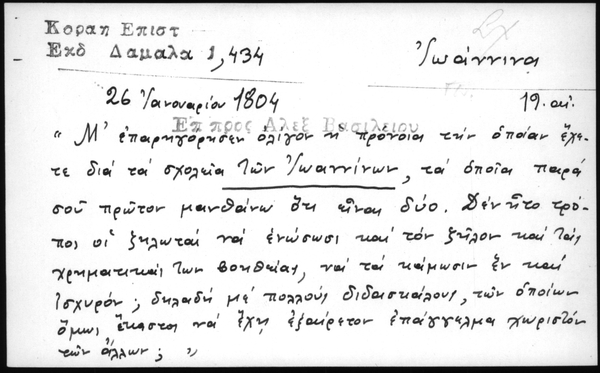 Κοραη Επιστ
Εκδ Δαμαλα 1,434
Ἰωάννινα
26 Ἰανουαρίου 1804
19. αἰ.
Επ προς Αλεξ Βασιλειου
" Μ' ἐπαρηγόρησεν ὀλίγον ἡ πρόνοια τὴν ὁποίαν ἔχε-
τε διά τά σχολεῖα τῶν Ἰωαννίνων, τά ὁποῖα παρά
σοῦ πρῶτον μανθάνω ὅτι εἶναι δύο. Δέν ἦτο τρό-
πος οἱ ζηλωταί νά ἑνώσωσι καί τόν ζῆλον καί τάς
χρηματικάς των βοηθείας, νά τά κάμωσιν ἕν καί
ἰσχυρόν ; δηλαδή μέ πολλούς διδασκάλους, τῶν ὁποίων
ὅμως ἕκαστος νά ἔχῃ ἐξαίρετον ἐπάγγελμα χωριστόν
τῶν ἄλλων ; "